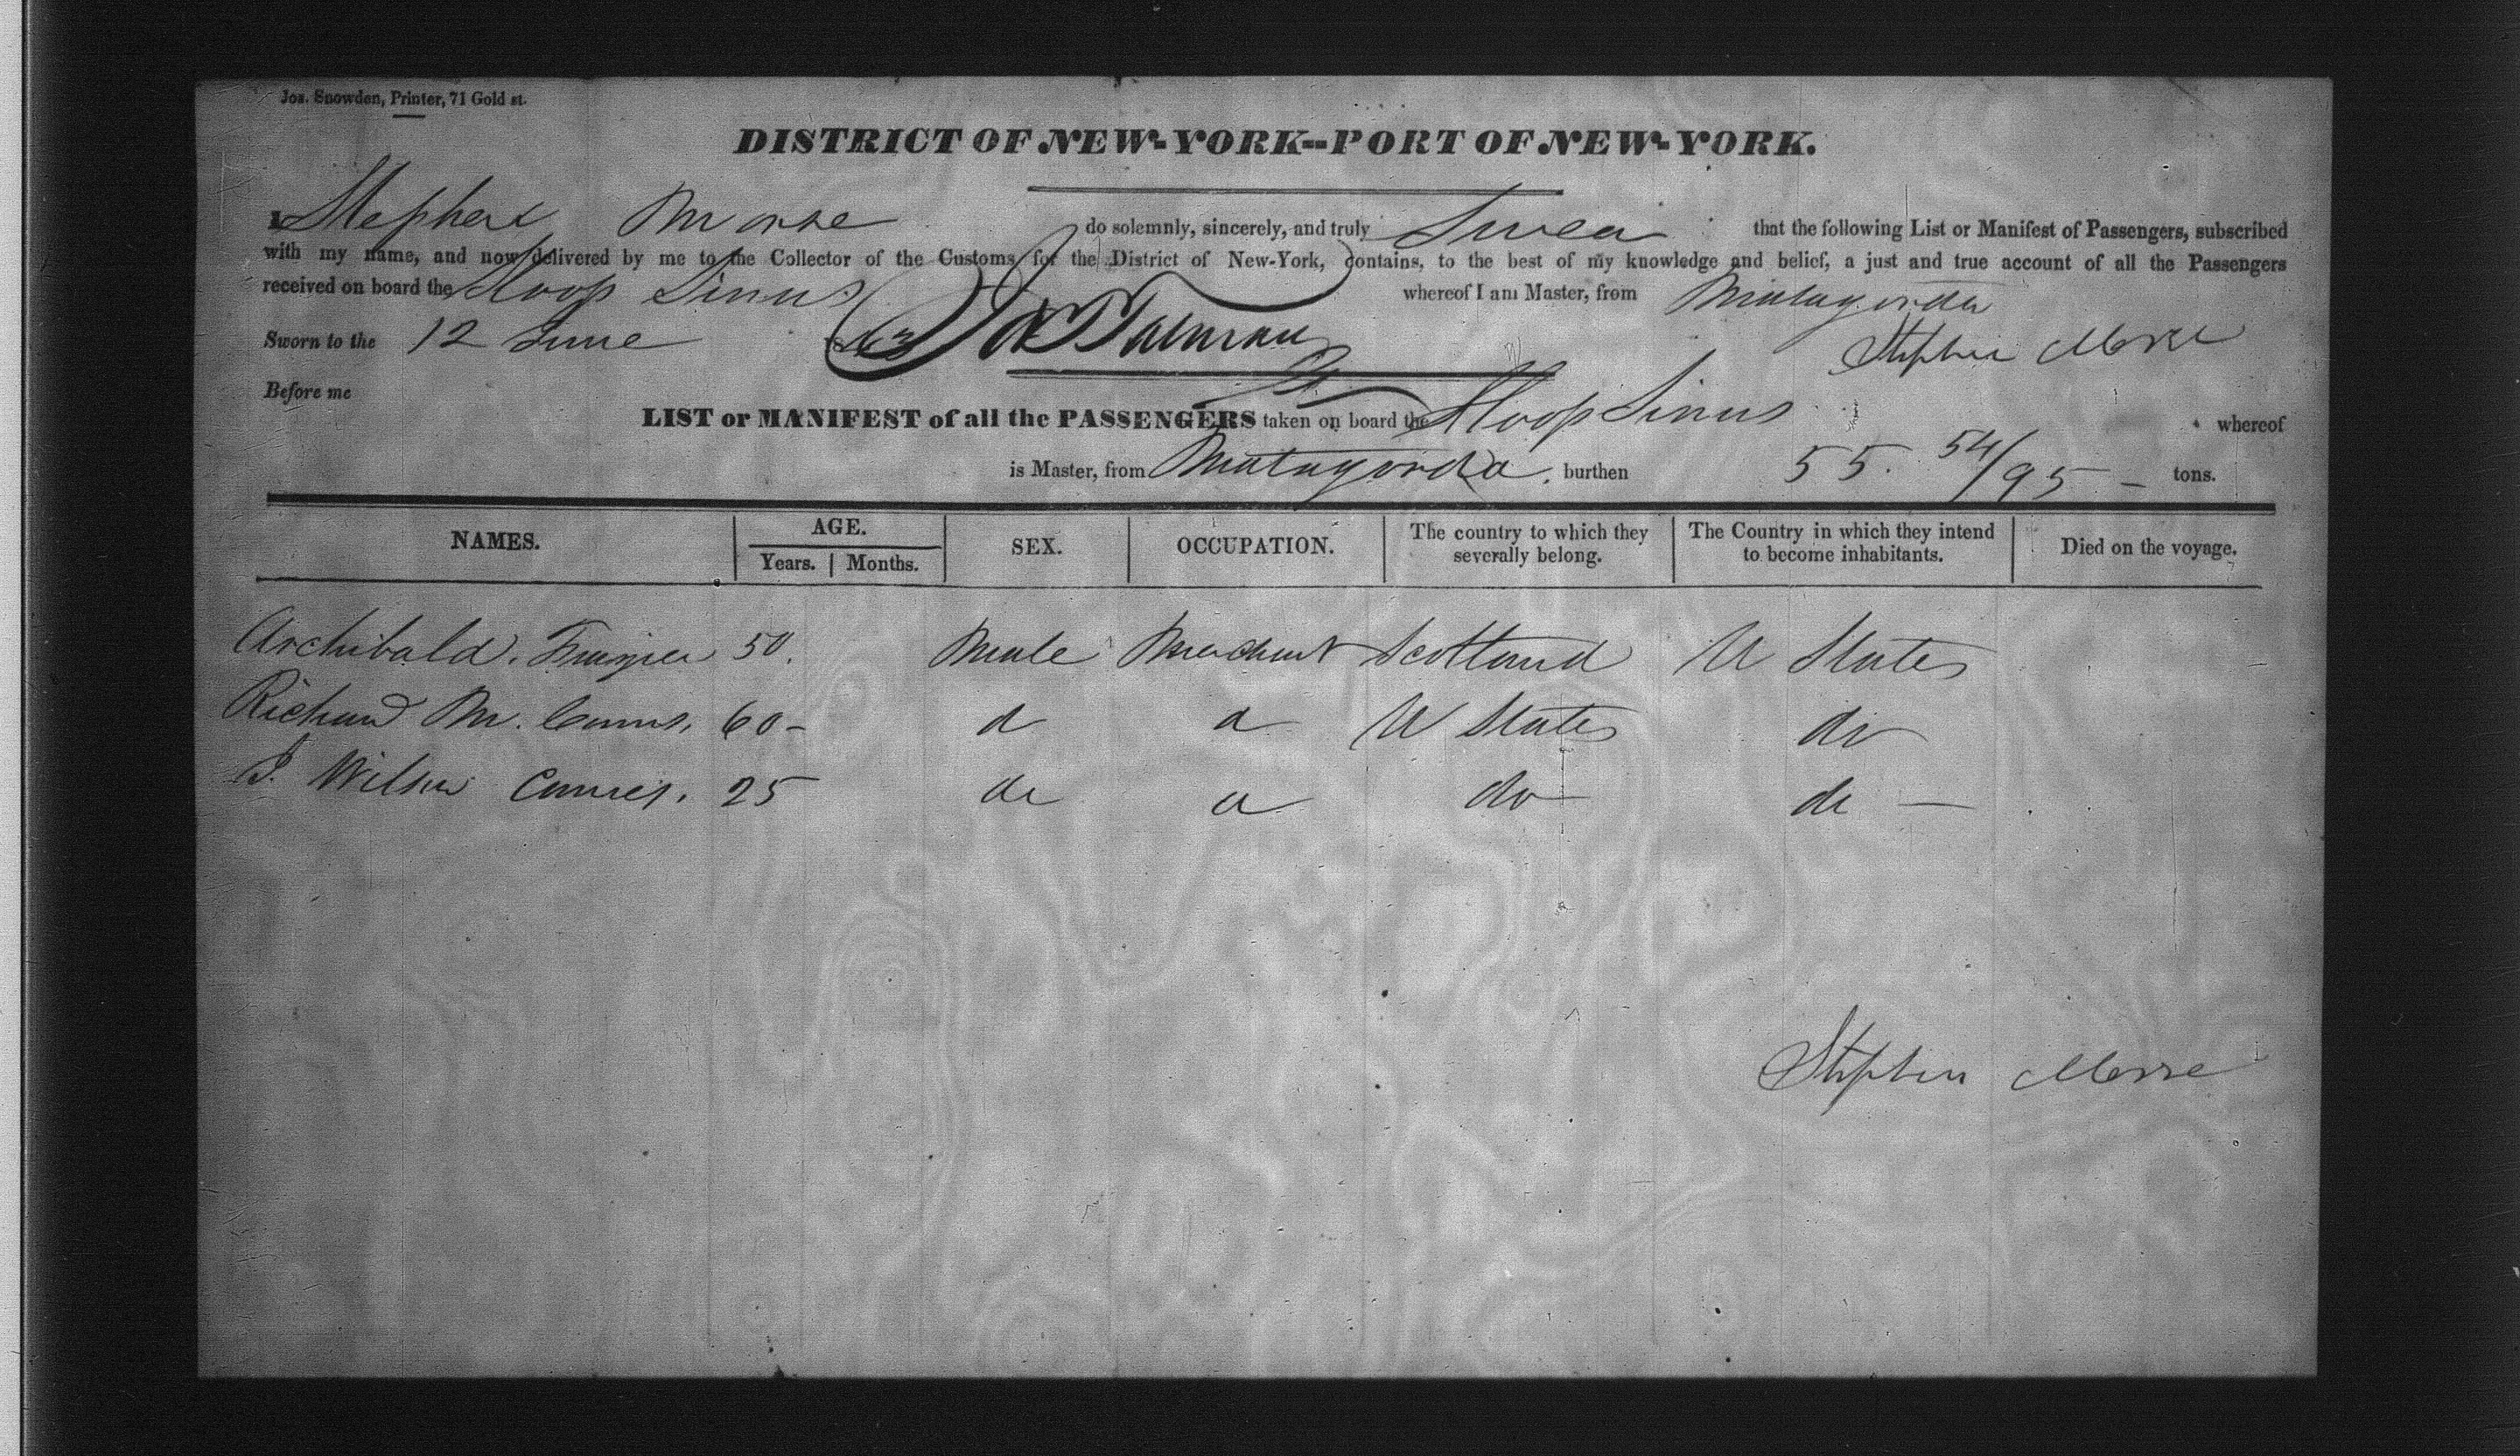 Jos. Snowden, Printer, 71 Gold st.
DISTRICT OF NEW-YORK--PORT OF NEW-YORK.
I Stephen Morse do solemnly, sincerely, and truly Swear that the following List or Manifest of Passengers, subscribed
with my name, and now delivered by me to the Collector of the Customs for the District of New-York, contains, to the best of my knowledge and belief, a just and true account of all the Passengers
received on board the Sloop Sirius whereof I am Master, from Matagorda
Sworn to the 12 June 1843 Stephen Morse
Before me
LIST or MANIFEST of all the PASSENGERS taken on board the Sloop Sirius whereof
is Master, from Matagorda, burthen 55. 54/95 - tons.
NAMES. AGE. Years. Months. SEX. OCCUPATION. The country to which they severally belong. The Country in which they intend to become inhabitants. Died on the voyage.
Archibald. 50. Male Merchant Scotland U States
Richard M. 60- d d U States do
J. Wilson 25 do d do do —
Stephen Morse